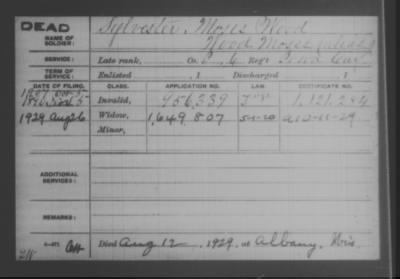 DEAD
NAME OF SOLDIER:
Sylvester, Moses Wood
Wood, Moses
SERVICE:
Late rank, Co. 6 Reg't Cav.
TERM OF SERVICE:
Enlisted , 1 Discharged , 1
DATE OF FILING. CLASS. APPLICATION NO. LAW. CERTIFICATE NO.
Invalid, 956,339 1,121,244
1929 Aug 26 Widow, 1,649,807 a 10-11-29
Minor,
ADDITIONAL SERVICES:
REMARKS:
Died Aug 12, 1929, at Albany, Wis.